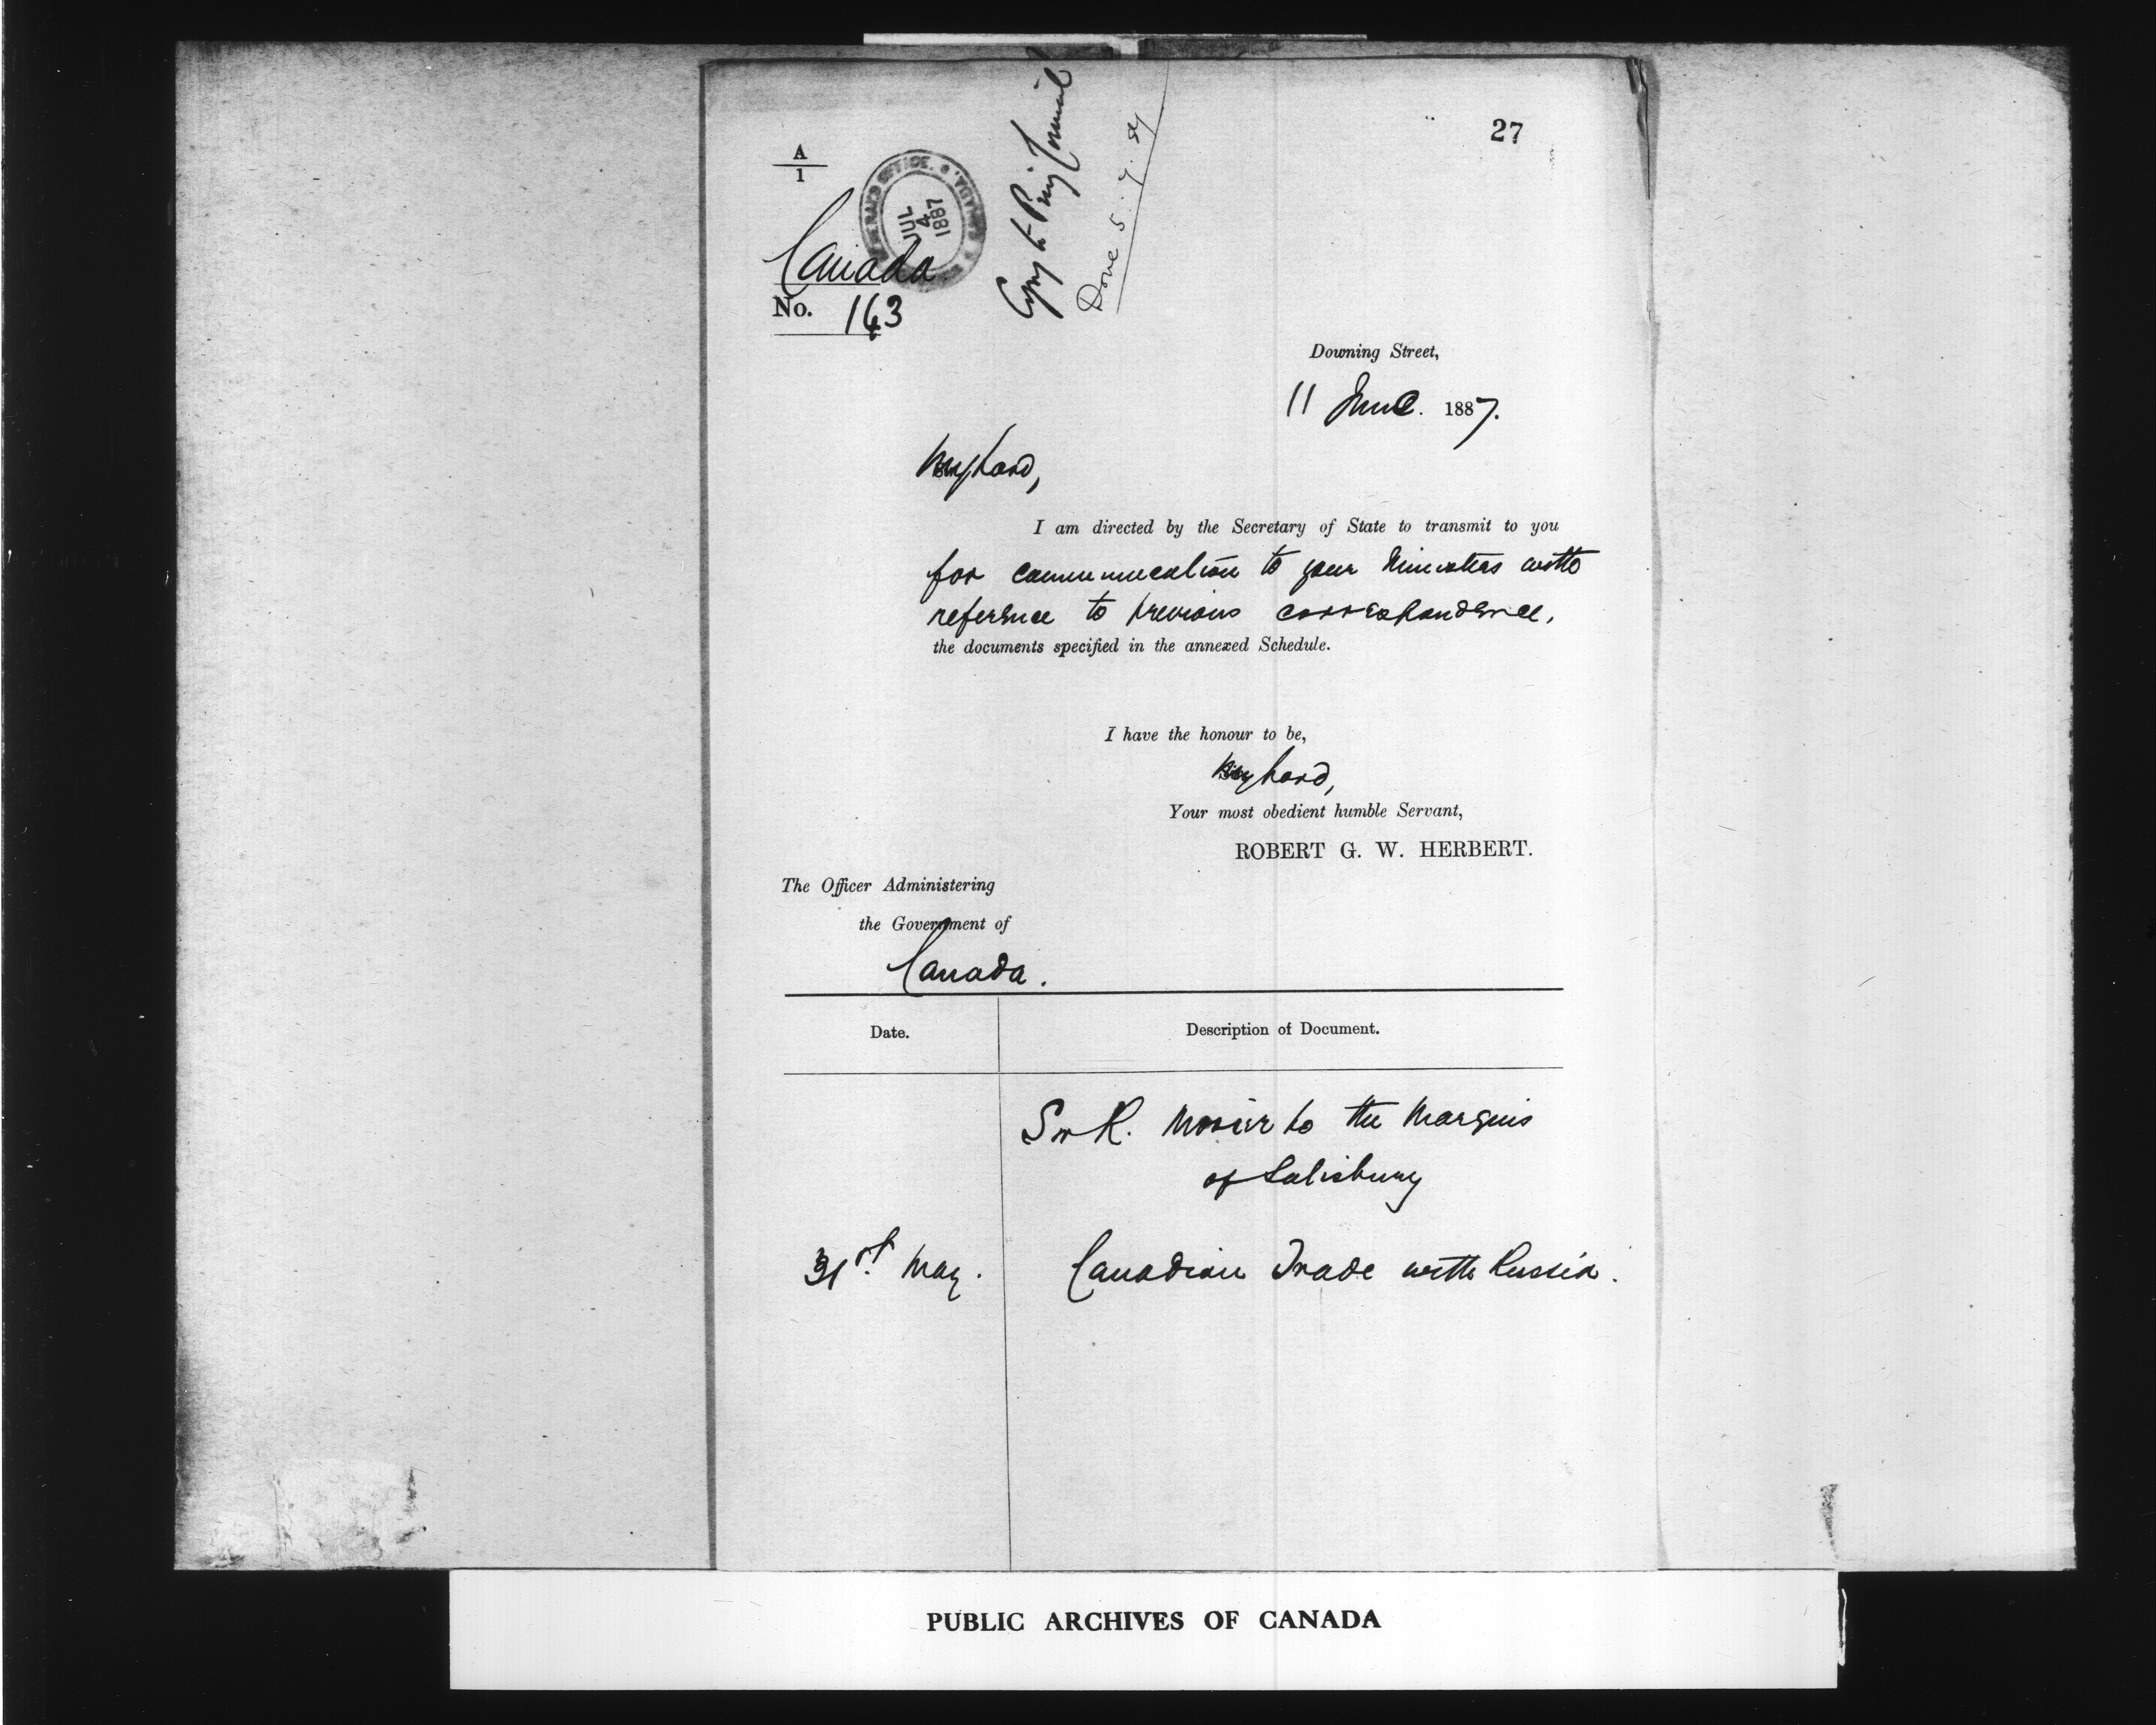 27
A
1
GOVERNOR GENERAL'S OFFICE. CANADA.
JUL
4
1887
Copy to Privy Council
Done 5.7.87
Canada
No. 163
Downing Street,
11 June. 1887.
My Lord,
I am directed by the Secretary of State to transmit to you
for communication to your Ministers with
reference to previous correspondence,
the documents specified in the annexed Schedule.
I have the honour to be,
My Lord,
Your most obedient humble Servant,
ROBERT G. W. HERBERT.
The Officer Administering
the Government of
Canada.
Date. Description of Document.
Sir R. Morier to the Marquis
of Salisbury
31st May. Canadian Trade with Russia.
PUBLIC ARCHIVES OF CANADA